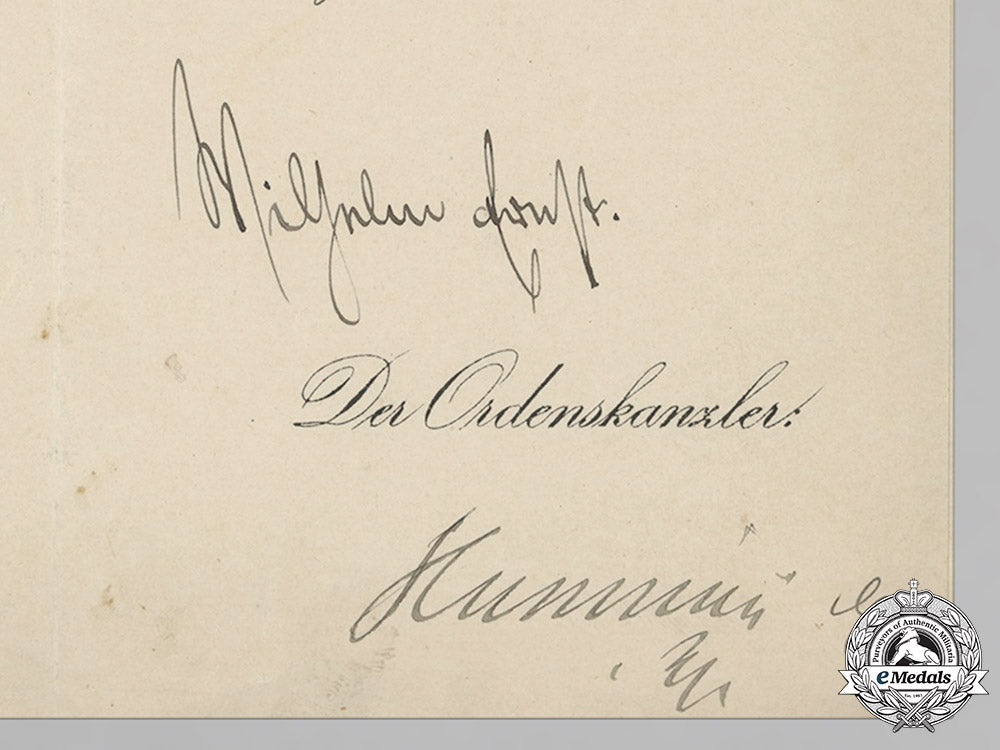 Wilhelm Ernst.
Der Ordenskanzler:
Purveyors of Authentic Militaria
eMedals